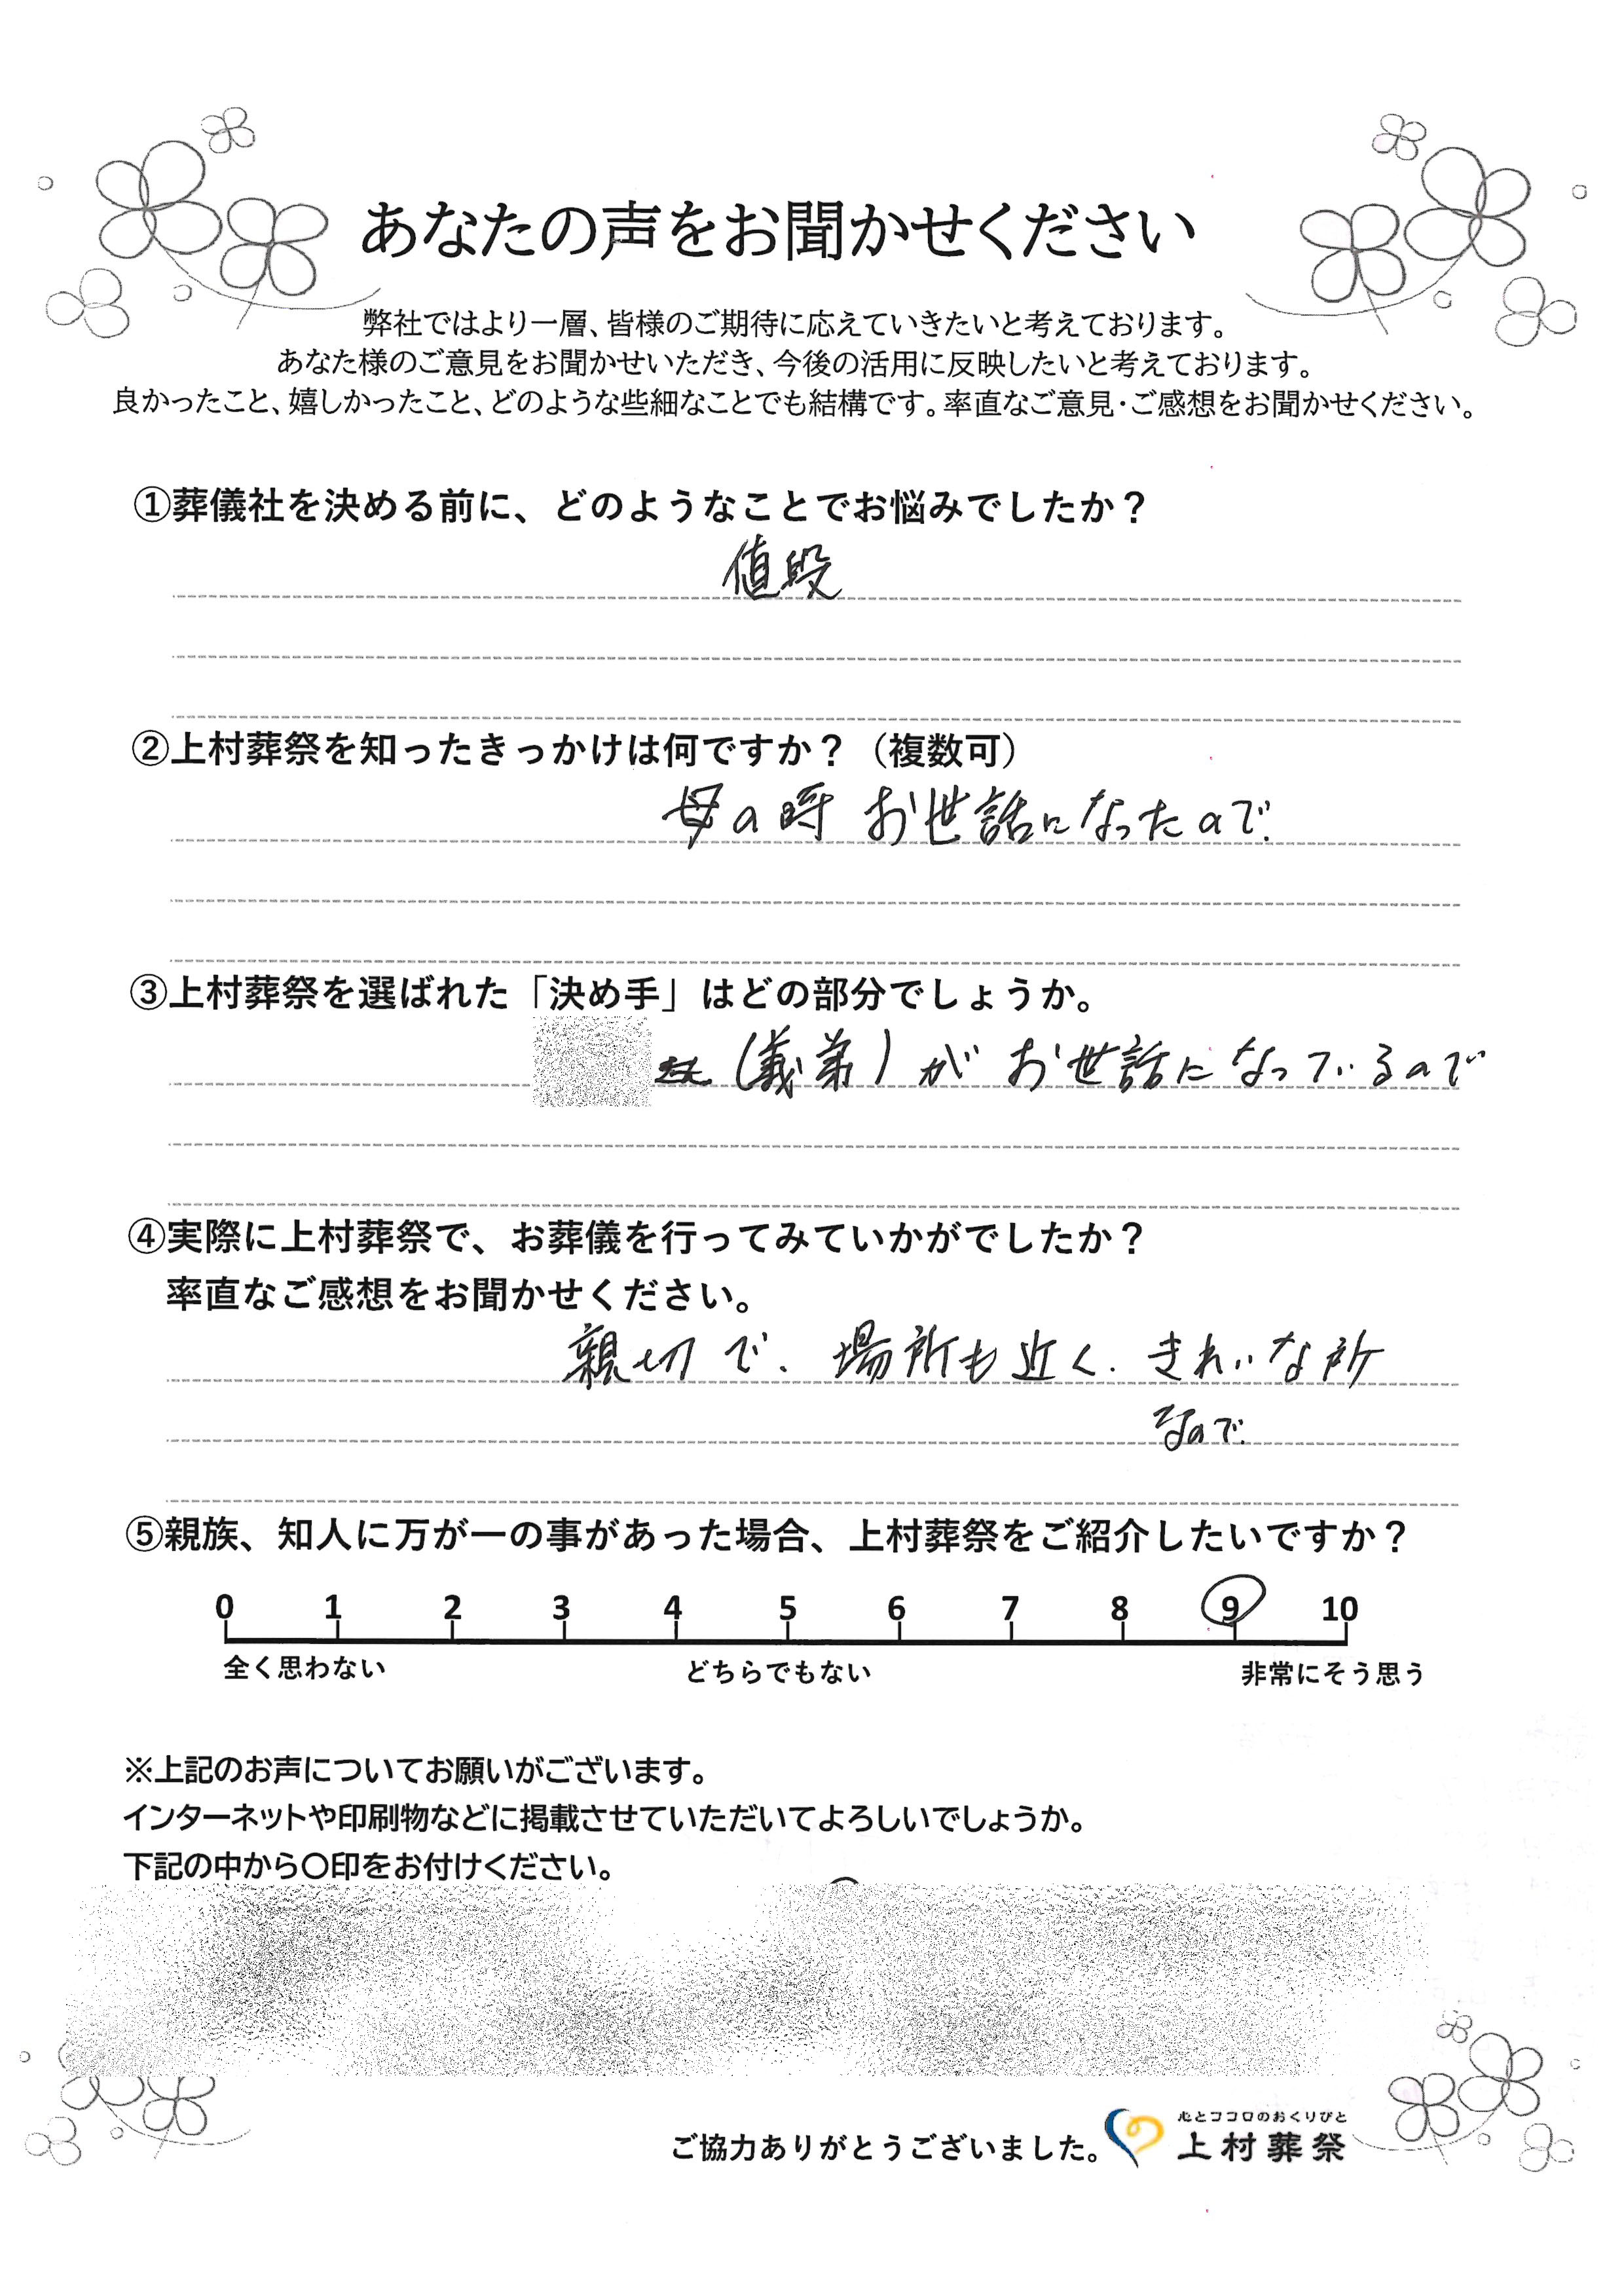 あなたの声をお聞かせください
弊社ではより一層、皆様のご期待に応えていきたいと考えております。
あなた様のご意見をお聞かせいただき、今後の活用に反映したいと考えております。
良かったこと、嬉しかったこと、どのような些細なことでも結構です。率直なご意見・ご感想をお聞かせください。
①葬儀社を決める前に、どのようなことでお悩みでしたか?
値段
②上村葬祭を知ったきっかけは何ですか?（複数可）
母の時 お世話になったので.
③上村葬祭を選ばれた「決め手」はどの部分でしょうか。
(義弟)が お世話になっているので
④実際に上村葬祭で、お葬儀を行ってみていかがでしたか?
率直なご感想をお聞かせください。
親切で、場所も近く、きれいな所
なので.
⑤親族、知人に万が一の事があった場合、上村葬祭をご紹介したいですか?
0 1 2 3 4 5 6 7 8 9 10
全く思わない どちらでもない 非常にそう思う
※上記のお声についてお願いがございます。
インターネットや印刷物などに掲載させていただいてよろしいでしょうか。
下記の中から〇印をお付けください。
ご協力ありがとうございました。
心とココロのおくりびと
上村葬祭